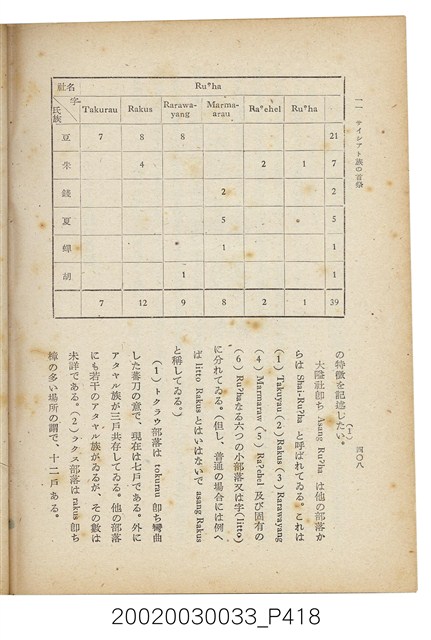 一一 サイシアト族の言祭
四〇八
社名 Ruʔha
字 氏族 Takurau Rakus Rarawa-yang Marma-arau Raʔehel Ruʔha
豆 7 8 8 21
朱 4 2 1 7
錢 2 2
夏 5 5
蟬 1 1
胡 1 1
7 12 9 8 2 1 39
の特徵を記述したい。
大隘社卽ち Asang Ruʔha は他の部落か
らは Shai-Ruʔha と呼ばれてゐる。これは
(1) Takuyau (2) Rakus (3) Rarawayang
(4) Marmarau (5) Raʔehel 及び固有の
(6) Ruʔha なる六つの小部落又は字(litto)
に分れてゐる。(但し、普通の場合には例へ
ば litto Rakus とはいはないで asang Rakus
と稱してゐる。)
(1) トクラウ部落は tokurau 卽ち彎曲
した蕃刀の意で、現在は七戶である。外に
アタヤル族が三戶共存してゐる。他の部落
にも若干のアタヤル族がゐるが、その數は
未詳である。(2) ラクス部落は rakus 卽ち
樟の多い場所の謂で、十二戶ある。
20020030033_P418